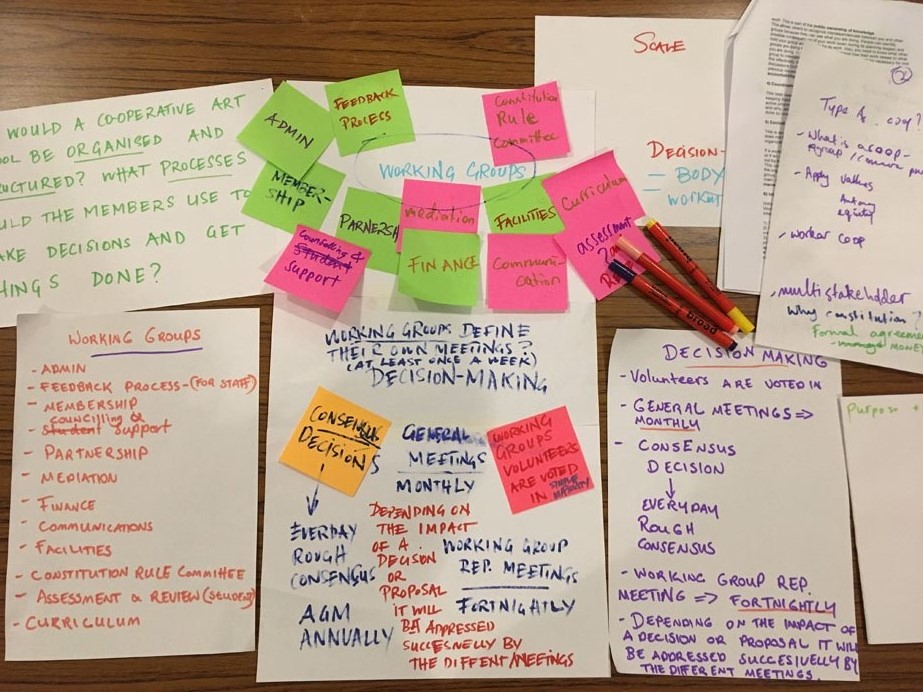 WOULD A CO-OPERATIVE ART
BE ORGANISED AND
? WHAT PROCESSES
THE MEMBERS USE TO
DECISIONS AND GET
DONE?
ADMIN
FEEDBACK
PROCESS
Constitution
Rule
Committee
WORKING GROUPS
MEMBER-
SHIP
mediation
FACILITIES
Curriculum
Counselling &
Student
support
FINANCE
Communi-
cation
assessment
SCALE
DECISION-
= BODY
Type
- What is a coop-
- Apply values
- worker coop
multistakeholder
Why constitution?
Formal
WORKING GROUPS
- ADMIN
- FEEDBACK PROCESS-(FOR STAFF)
- MEMBERSHIP
councilling &
- student support
- PARTNERSHIP
- MEDIATION
- FINANCE
- COMMUNICATIONS
- FACILITIES
- CONSTITUTION RULE COMMITTEE
- ASSESSMENT & REVIEW (student)
- CURRICULUM
WORKING GROUPS DEFINE
THEIR OWN MEETINGS?
(AT LEAST ONCE A WEEK)
DECISION-MAKING
CONSENSUS
DECISIONS
EVERDAY
ROUGH
CONSENSUS
AGM
ANNUALLY
GENERAL
MEETINGS
MONTHLY
DEPENDING ON
THE IMPACT
OF A
DECISION
OR
PROPOSAL
IT WILL
BE ADDRESSED
SUCCESNELLY BY
THE DIFFENT MEETINGS
WORKING GROUP
REP. MEETINGS
FORTNIGHTLY
WORKING
GROUPS
VOLUNTEERS
ARE VOTED
IN SIMPLE
MAJORITY
broad
DECISION MAKING
- Volunteers ARE VOTED IN
- GENERAL MEETINGS =>
MONTHLY
- CONSENSUS
DECISION
EVERYDAY
ROUGH
CONSENSUS
- WORKING GROUP REP.
MEETING => FORTNIGHTLY
- DEPENDING ON THE IMPACT OF
A DECISION OR PROPOSAL IT WILL
BE ADDRESSED SUCCESIVELLY BY
THE DIFFERENT MEETINGS.
Purpose +